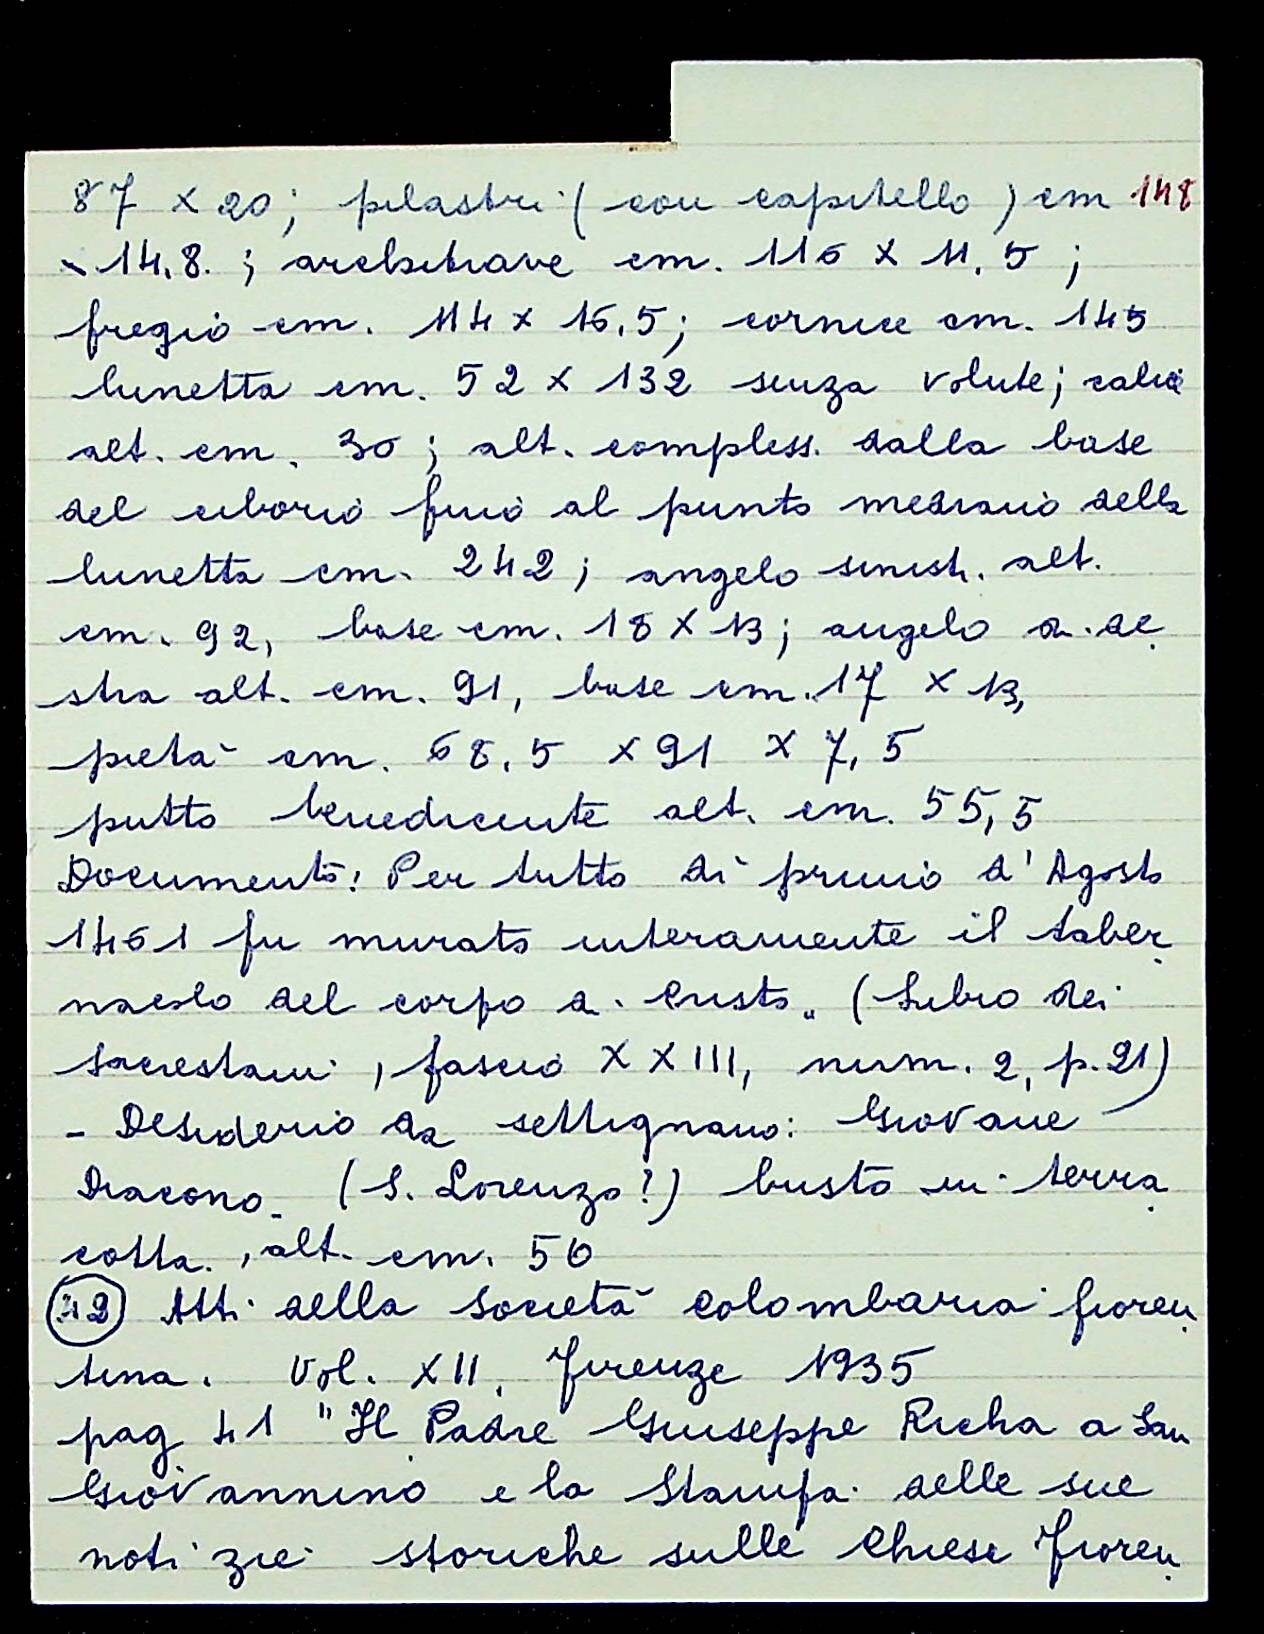 87 x 20; pilastri (con capitello) cm 148
x 14.8. ; architrave cm. 116 x 11,5 ;
fregio cm. 114 x 16,5; cornice cm. 145
lunetta cm. 52 x 132 senza volute; calice
alt. cm. 30 ; alt. compless. dalla base
del ciborio fino al punto mediano della
lunetta cm. 242 ; angelo sinist. alt.
cm. 92, base cm. 18 x 13 ; angelo a. de
stra alt. cm. 91, base cm. 17 x 13,
pietà cm. 68,5 x 91 x 7,5
putto benedicente alt. cm. 55,5
Documento: Per tutto dì primo d'Agosto
1461 fu murato interamente il taber
nacolo del corpo di Cristo" (Libro dei
sacrestani, fascio XXIII, num. 2, p. 21)
- Desiderio da Settignano: Giovane
Diacono (S. Lorenzo?) busto in terra
cotta., alt. cm. 50
42 Atti della Società Colombaria fioren
tina. Vol. XII. Firenze 1935
pag 41 "Il Padre Giuseppe Richa a San
Giovannino e la Stampa delle sue
notizie storiche sulle Chiese Fioren